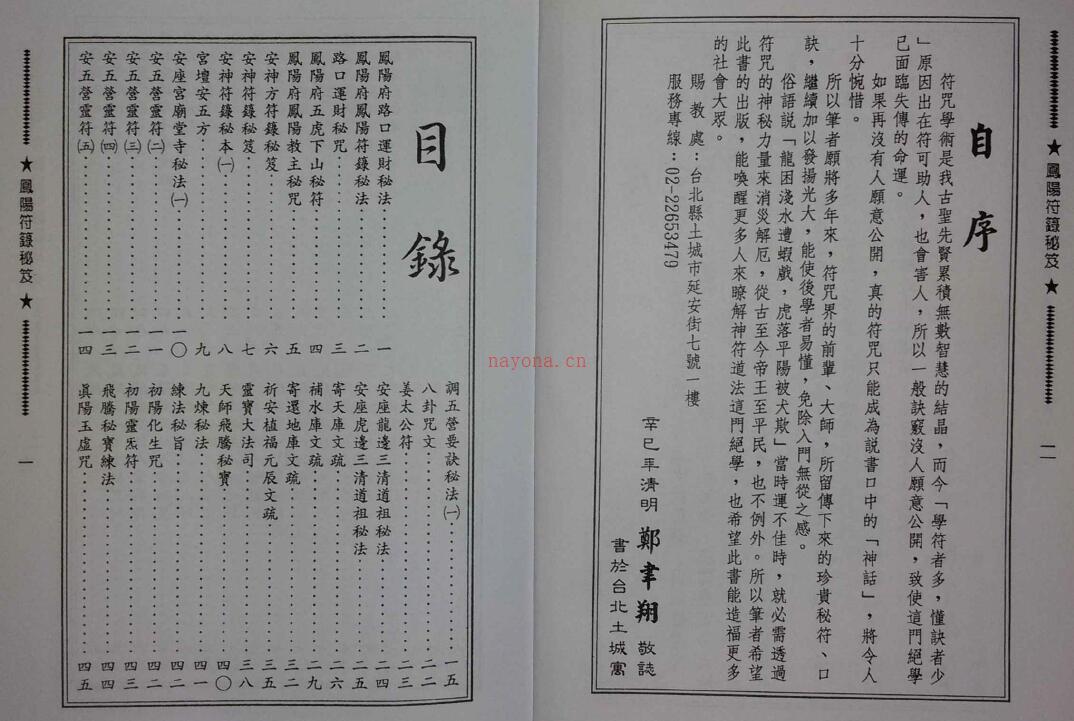 ★鳳陽符籙秘笈★
二
自序
符咒學術是我古聖先賢累積無數智慧的結晶，而今「學符者多，懂訣者少
」原因出在符可助人，也會害人，所以一般訣竅沒人願意公開，致使這門絕學
已面臨失傳的命運。
如果再沒有人願意公開，真的符咒只能成為說書口中的「神話」，將令人
十分惋惜。
所以筆者願將多年來，符咒界的前輩、大師，所留傳下來的珍貴秘符、口
訣，繼續加以發揚光大，能使後學者易懂，免除入門無從之感。
俗語說「龍困淺水遭蝦戲，虎落平陽被犬欺」當時運不佳時，就必需透過
符咒的神秘力量來消災解厄，從古至今帝王至平民，也不例外。所以筆者希望
此書的出版，能喚醒更多人來瞭解神符道法這門絕學，也希望此書能造福更多
的社會大眾。
賜教處：台北縣土城市延安街七號一樓
服務專線：02-22653479
辛巳年清明 鄭聿翔 敬誌
書於台北土城寓
目錄
鳳陽府路口運財秘法‥‥‥一
鳳陽府鳳陽符籙秘法‥‥‥二
路口運財秘咒‥‥‥三
鳳陽府五虎下山秘符‥‥‥四
鳳陽府鳳陽教主秘咒‥‥‥五
安神方符籙秘笈‥‥‥六
安神符籙秘笈‥‥‥七
安神符籙秘本㈠‥‥‥八
宮壇安五方‥‥‥九
安座宮廟堂寺秘法㈠‥‥‥一〇
安五營靈符㈡‥‥‥一一
安五營靈符㈢‥‥‥一二
安五營靈符㈣‥‥‥一三
安五營靈符㈤‥‥‥一四
調五營要訣秘法㈠‥‥‥一五
八卦咒文‥‥‥二二
姜太公符‥‥‥二三
安座龍邊三清道祖秘法‥‥‥二四
安座虎邊三清道祖秘法‥‥‥二五
寄天庫文疏‥‥‥二六
補水庫文疏‥‥‥二九
寄還地庫文疏‥‥‥三二
祈安植福元辰文疏‥‥‥三五
靈寶大法司‥‥‥三八
天師飛騰秘寶‥‥‥四〇
九煉秘法‥‥‥四一
練法秘旨‥‥‥四二
初陽化生咒‥‥‥四二
初陽靈炁符‥‥‥四三
飛騰秘寶練法‥‥‥四四
真陽玉虛咒‥‥‥四五
★鳳陽符籙秘笈★
一
nayona.cn